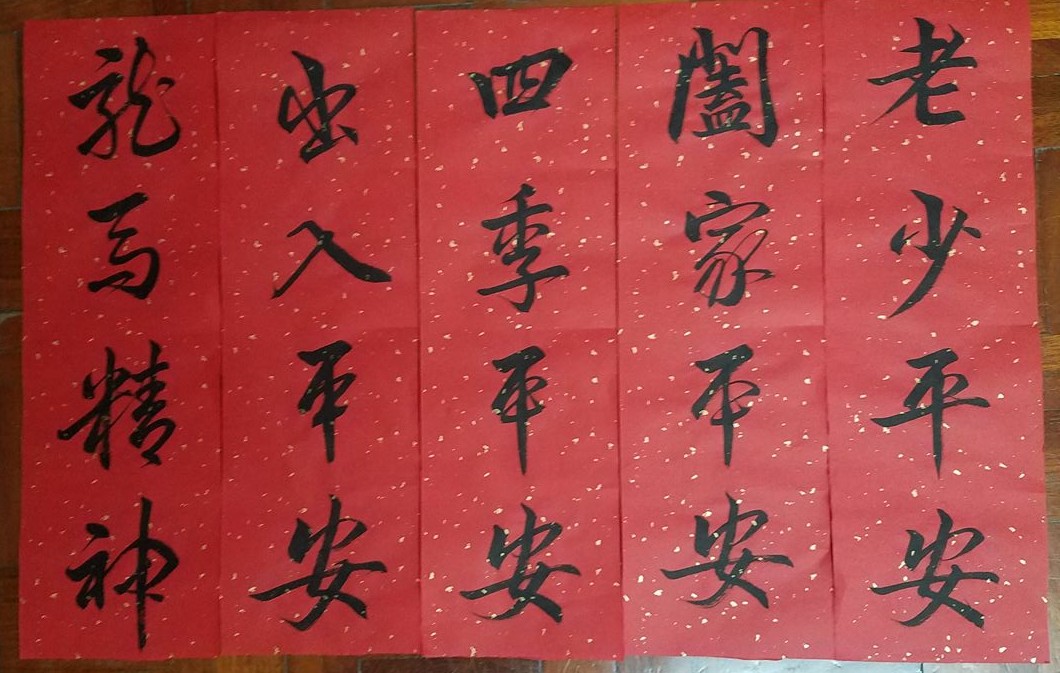 老少平安
闔家平安
四季平安
出入平安
龍馬精神